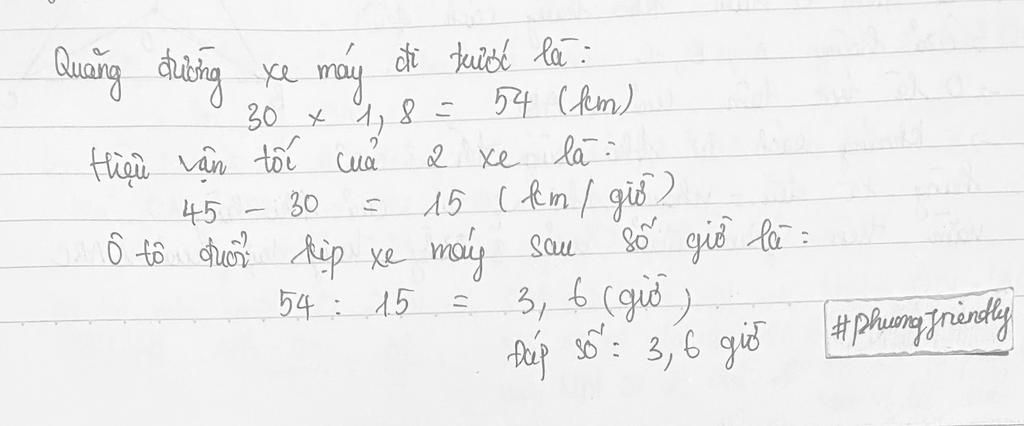 Quãng đường xe máy đi trước là:
30 x 1,8 = 54 (km)
Hiệu vận tốc của 2 xe là:
45 - 30 = 15 (km/giờ)
Ô tô đuổi kịp xe máy sau số giờ là:
54 : 15 = 3,6 (giờ)
Đáp số: 3,6 giờ
#phuongfriendly